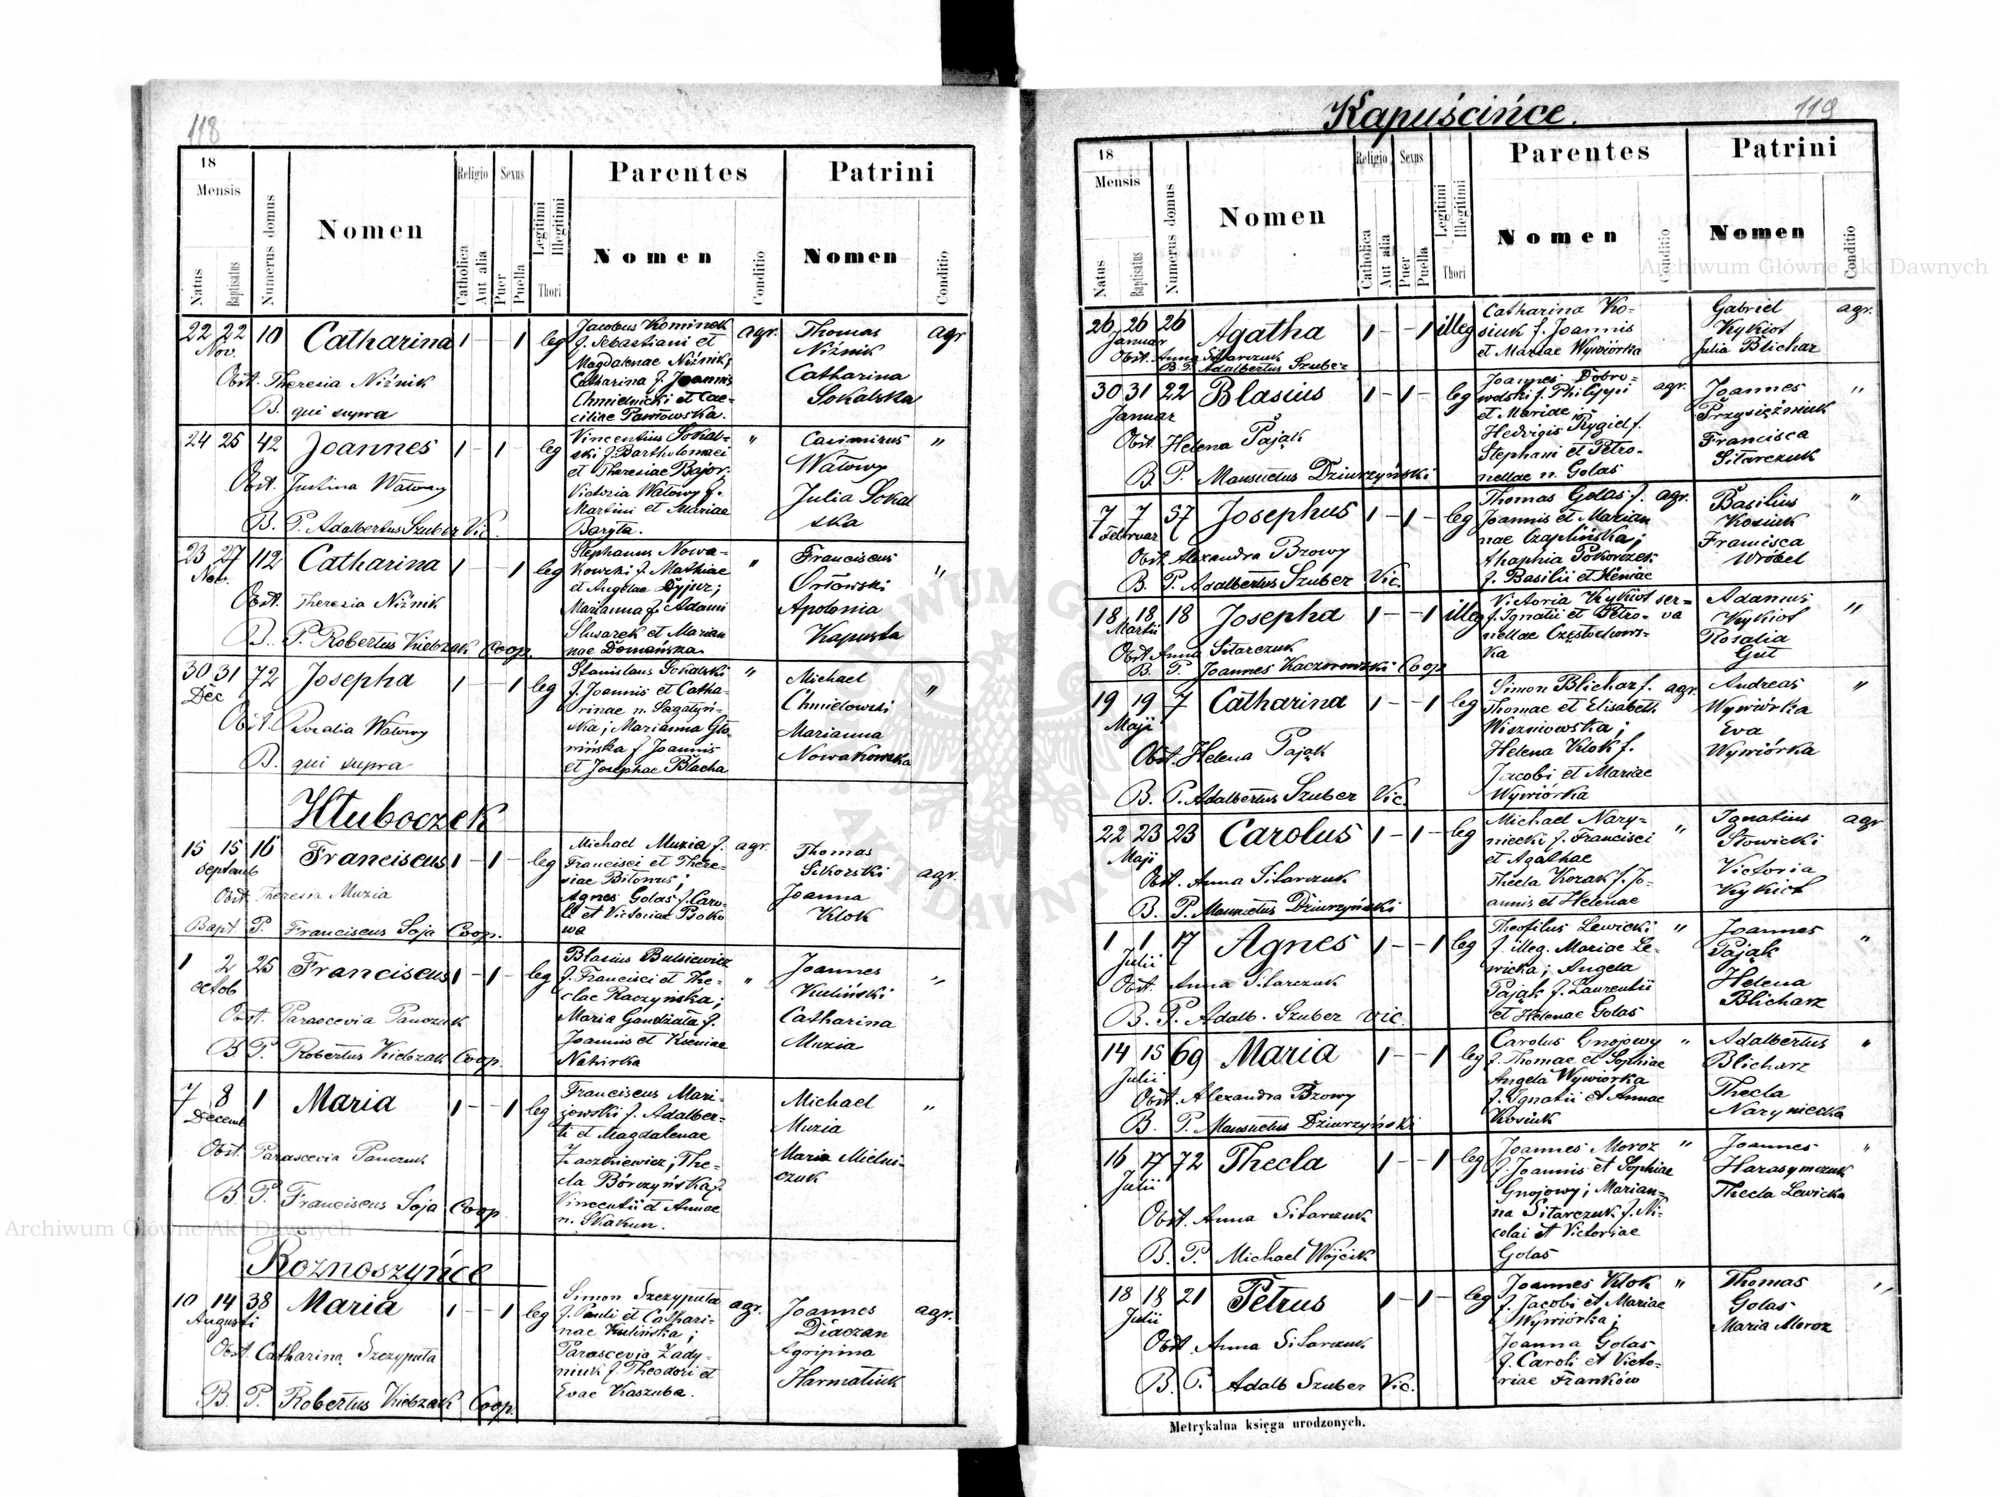 118
18
Mensis
Natus
Baptisatus
Numerus domus
Nomen
Religio
Catholica
Aut alia
Sexus
Puer
Puella
Legitimi
Illegitimi
Thori
Parentes
Nomen
Conditio
Patrini
Nomen
Conditio
22 22 10 Catharina 1 - - 1 leg
Nov.
Obst. Theresia Niżnik
B. qui supra
Jacobus Kominek agr.
f. Sebastiani et
Magdalenae Niżnik;
Catharina f. Joannis
Chmielnicki et Cae-
ciliae Pawłowska.
Thomas agr
Niżnik
Catharina
Sokalska
24 25 42 Joannes 1 - 1 - leg
Obst. Justina Watowy
B. P. Adalbertus Szuber Vic.
Vincentius Sokal- "
ski f. Bartholomaei
et Theresiae Bajor.
Victoria Watowy f.
Martini et Mariae
Baryta.
Casimirus "
Watowy
Julia Sokal
ska
23 27 112 Catharina 1 - - 1 leg
Nov.
Obst. Theresia Niżnik
B. P. Robertus Kiebzak Coop.
Stephanus Nowa- "
kowski f. Mathiae
et Angelae Dyjur;
Marianna f. Adami
Sliwarek et Marian
nae Domańska.
Franciscus
Orłowski "
Apolonia
Kapusta
30 31 72 Josepha 1 - - 1 leg
Dec
Obst. Rozalia Watowy
B. qui supra
Stanislaus Sokalski "
f. Joannis et Catha-
rinae n. Sagatyń-
ska; Marianna Gło-
wińska f. Joannis
et Josephae Blacha
Michael
Chmielowski "
Marianna
Nowakowska
Hłuboczek
15 15 16 Franciscus 1 - 1 - leg
Septemb
Obst. Theresia Muzia
Bapt P. Franciscus Soja Coop.
Michael Muzia f. agr.
Francisci et There-
siae Bitonus;
Agnes Golas f. Caro-
li et Victoriae Botko
wa
Thomas
Sikorski agr.
Joanna
Klok
1 2 25 Franciscus 1 - 1 - leg
Octob
Obst. Parascevia Panczuk
B P. Robertus Kiebzak Coop.
Blasius Butsiewicz
f. Francisci et The- "
clae Raczyńska;
Maria Gandzała f.
Joannis et Kseniae
Nahirka
Joannes
Kuliński "
Catharina
Muzia
7 8 1 Maria 1 - - 1 leg
Decemb
Obst. Parascevia Panczuk
B P. Franciscus Soja Coop.
Franciscus Mari-
jowski f. Adalber-
ti et Magdalenae
Zaczkiewicz; The-
cla Bórczyńska f.
Vincentii et Annae
n. Skakun.
Michael "
Muzia
Maria Mielni-
czuk
Roznoszyńce
10 14 38 Maria 1 - - 1 leg
Augusti
Obst. Catharina Szczyputa
B. P. Robertus Kiebzak Coop.
Simon Szczyputa agr.
f. Pauli et Cathari-
nae Kulińska;
Parascevia Zady-
niuk f. Theodori et
Evae Kaszuba.
Joannes agr.
Diaczan
Agripina
Harmatiuk
Kapuścińce.
119
18
Mensis
Natus
Baptisatus
Numerus domus
Nomen
Religio
Catholica
Aut alia
Sexus
Puer
Puella
Legitimi
Illegitimi
Thori
Parentes
Nomen
Conditio
Patrini
Nomen
Conditio
26 26 26 Agatha 1 - - 1 illeg
Januar
Obst. Anna Sitarczuk
B. P. Adalbertus Szuber
Catharina Ko-
siuk f. Joannis
et Mariae Wywiórka
Gabriel agr.
Kykiot
Julia Blichar
30 31 22 Blasius 1 - 1 - leg
Januar
Obst. Helena Pająk
B P. Mansuetus Dziurzyński
Joannes Dobro- agr.
wolski f. Philippi
et Mariae
Hedvigis Rygiel f.
Stephani et Petro-
nellae n. Golas
Joannes "
Przysiężniuk
Francisca
Sitarczuk
7 7 57 Josephus 1 - 1 - leg
Februar
Obst. Alexandra Bzowy
B. P. Adalbertus Szuber Vic.
Thomas Golas f. agr.
Joannis et Marian
nae Czaplińska;
Ahaphia Pokorczek
f. Basilii et Xeniae
Basilius "
Kosiuk
Francisca
Wróbel
18 18 18 Josepha 1 - - 1 illeg
Martii
Obst Anna Sitarczuk
B. P. Joannes Kaczorowski Coop
Victoria Kykiot ser-
f. Ignatii et Petro- va
nellae Częstochows-
ka
Adamus "
Kykiot
Rosalia
Gut
19 19 7 Catharina 1 - - 1 leg
Maji
Obst. Helena Pająk
B. P. Adalbertus Szuber Vic.
Simon Blichar f. agr.
Thomae et Elisabeth
Wiszniowska;
Helena Klok f.
Jacobi et Mariae
Wywiórka
Andreas "
Wywiórka
Eva
Wywiórka
22 23 23 Carolus 1 - 1 - leg
Maji
Obst. Anna Sitarczuk
B. P. Mansuetus Dziurzyński
Michael Nary- "
niecki f. Francisci
et Agathae
Thecla Kozak f. Jo-
annis et Helenae
Ignatius agr
Słowicki
Victoria
Kykiot
1 1 17 Agnes 1 - - 1 leg
Julii
Obst. Anna Sitarczuk
B. P. Adalb. Szuber Vic.
Theofilus Lewicki "
f. illeg. Mariae Le-
wicka; Angela
Pająk f. Laurentii
et Helenae Golas
Joannes "
Pająk
Helena
Blicharz
14 15 69 Maria 1 - - 1 leg
Julii
Obst. Alexandra Bzowy
B. P. Mansuetus Dziurzyński
Carolus Gnojowy "
f. Thomae et Sophiae
Angela Wywiórka
f. Ignatii et Annae
Kosiuk
Adalbertus "
Blicharz
Thecla
Naryniecka
16 17 72 Thecla 1 - - 1 leg
Julii
Obst. Anna Sitarczuk
B. P. Michael Wójcik
Joannes Moroz "
f. Joannis et Sophiae
Gnojowy; Marian-
na Sitarczuk f. Ni-
colai et Victoriae
Golas
Joannes "
Harasymczuk
Thecla Lewicka
18 18 21 Petrus 1 - 1 - leg
Julii
Obst. Anna Sitarczuk
B. P. Adalb Szuber Vic.
Joannes Klok "
f. Jacobi et Mariae
Wywiórka;
Joanna Golas
f. Caroli et Victo-
riae Franków
Thomas "
Golas
Maria Moroz
Metrykalna księga urodzonych.
Archiwum Główne Akt Dawnych
Archiwum Główne Akt Dawnych
ARCHIWUM GŁÓWNE AKT DAWNYCH